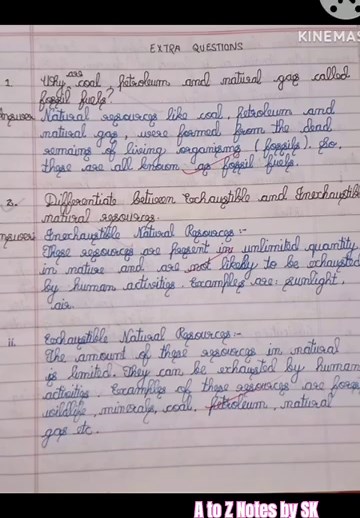 KINEMAS
EXTRA QUESTIONS
1. Why are coal, petroleum and natural gas called
fossil fuels?
Answer Natural resources like coal, petroleum and
natural gas, were formed from the dead
remains of living organisms (fossils). So,
these are all known as fossil fuels.
2. Differentiate between Exhaustible and Inexhaustible
natural resources.
Answer Inexhaustible Natural Resources:-
These resources are present in unlimited quantity
in nature and are not likely to be exhausted
by human activities. Examples are: sunlight,
air.
ii. Exhaustible Natural Resources:-
The amount of these resources in natural
is limited. They can be exhausted by human
activities. Examples of these resources are fores
wildlife, minerals, coal, petroleum, natural
gas etc.
A to Z Notes by SK